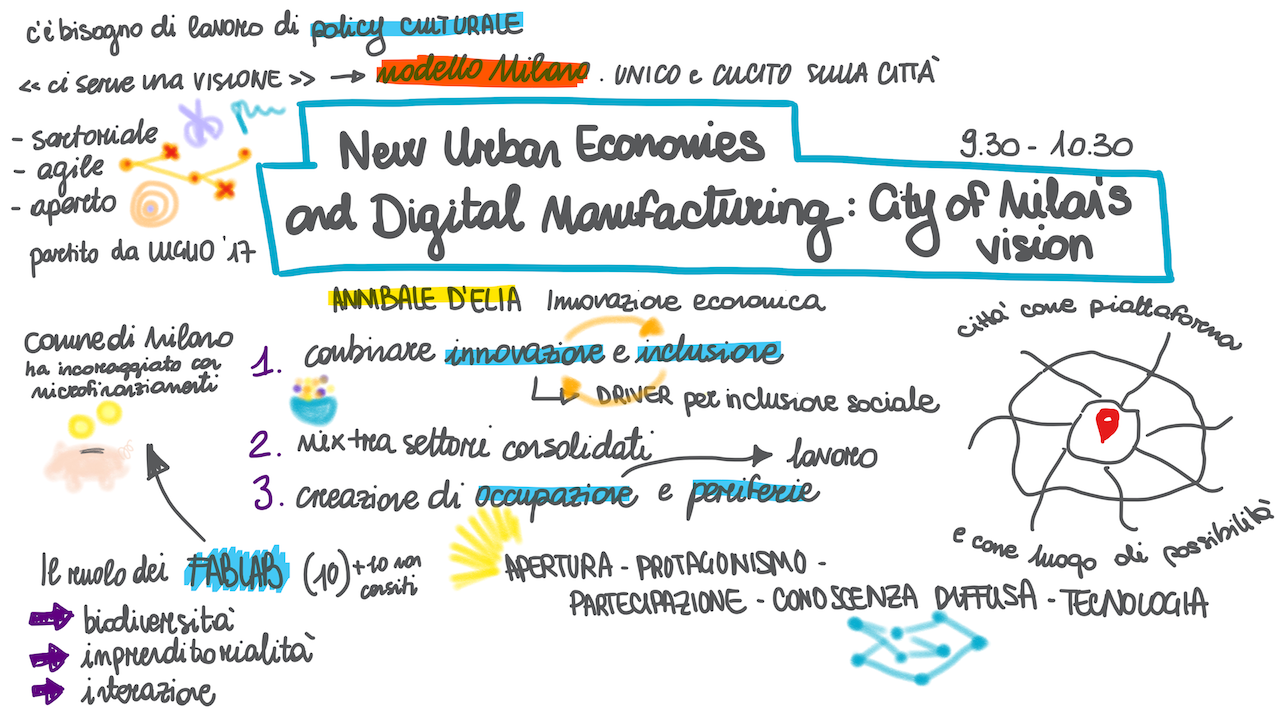 c'è bisogno di lavoro di policy CULTURALE
<< ci serve una VISIONE >> → modello Milano. UNICO e CUCITO SULLA CITTÀ
- sartoriale
- agile
- aperto
partito da LUGLIO '17
9.30 - 10.30
New Urban Economies
and Digital Manufacturing: City of Milan's
vision
ANNIBALE D'ELIA Innovazione economica
comune di Milano
ha incoraggiato con
microfinanziamenti
1. combinare innovazione e inclusione
DRIVER per inclusione sociale
2. mix tra settori consolidati
lavoro
3. creazione di occupazione e periferie
città come piattaforma
e come luogo di possibilità
Il ruolo dei FABLAB (10) +10 non
censiti
biodiversità
imprenditorialità
interazione
APERTURA - PROTAGONISMO -
PARTECIPAZIONE - CONOSCENZA DIFFUSA - TECNOLOGIA